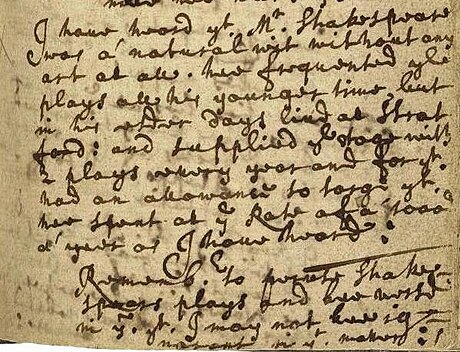 I have heard yt. Mr. Shakespeare
was a natural wit without any
art at all. hee frequented ye
plays all his younger time, but
in his elder days lived at Strat
ford: and supplied ye stage with
2 plays every year and for yt.
had an allowance so large yt.
hee spent at ye Rate of a 1000
a year as I have heard:
Rememb. to peruse Shakes-
spears plays and bee versd
in ym. yt. I may not bee ig
norant in yt. matter: